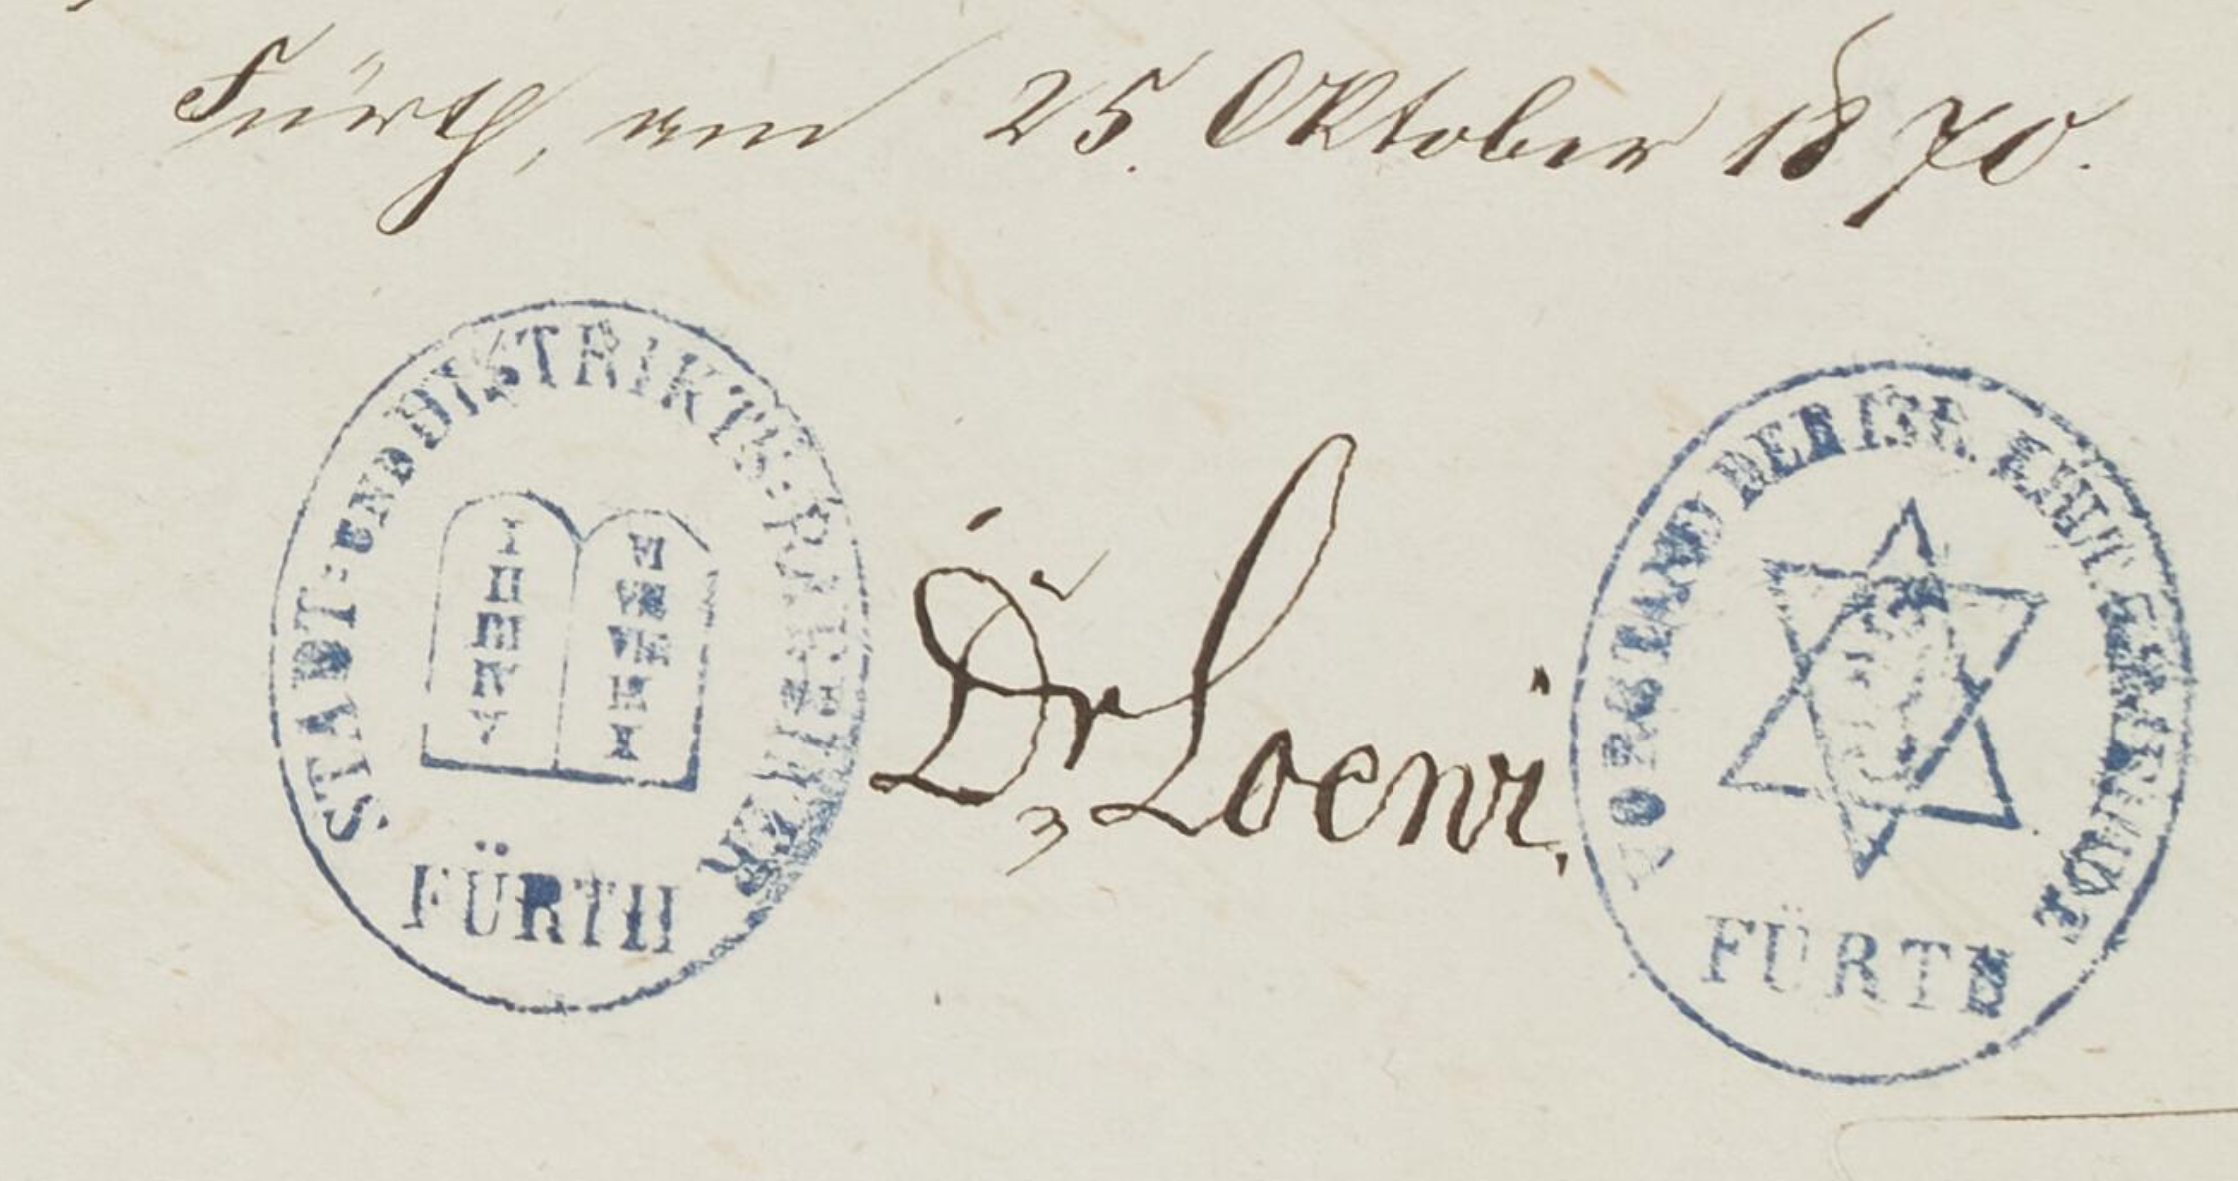 Fürth, am 25. Oktober 1870.
STADT- UND DISTRIKTS-RABBINER
I
II
III
IV
V
VI
VII
VIII
IX
X
FÜRTH
Dr. Loewi.
VORSTAND DER ISR. KULT. GEMEINDE
FÜRTH